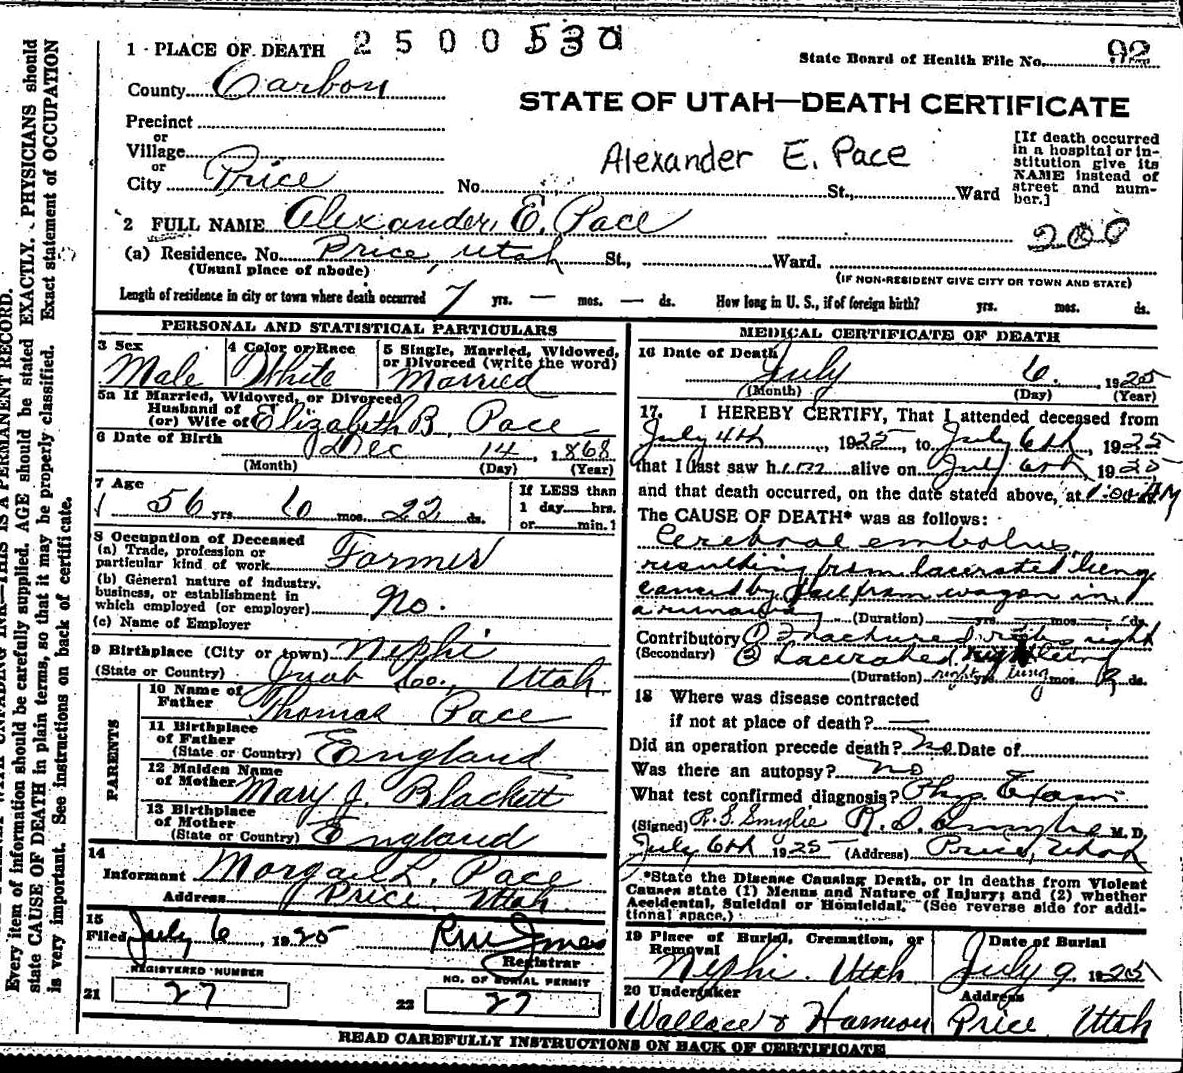 1 - PLACE OF DEATH 2500530
State Board of Health File No. 92
County Carbon
STATE OF UTAH—DEATH CERTIFICATE
Precinct
or
Village
or
City Price No. St., Ward
Alexander E. Pace
[If death occurred
in a hospital or in-
stitution give its
NAME instead of
street and num-
ber.]
2 FULL NAME Alexander E. Pace
200
(a) Residence. No. Price, Utah St., Ward.
(Usual place of abode)
(IF NON-RESIDENT GIVE CITY OR TOWN AND STATE)
Length of residence in city or town where death occurred 7 yrs. — mos. — ds. How long in U. S., if of foreign birth? yrs. mos. ds.
PERSONAL AND STATISTICAL PARTICULARS
3 Sex
Male
4 Color or Race
White
5 Single, Married, Widowed,
or Divorced (write the word)
Married
5a If Married, Widowed, or Divorced
Husband of
(or) Wife of Elizabeth B. Pace
6 Date of Birth Dec 14, 1868
(Month) (Day) (Year)
7 Age
56 yrs. 6 mos. 22 ds.
If LESS than
1 day hrs.
or min.
8 Occupation of Deceased
(a) Trade, profession or
particular kind of work Farmer
(b) General nature of industry,
business, or establishment in
which employed (or employer) No.
(c) Name of Employer
9 Birthplace (City or town) Nephi
(State or Country) Juab Co., Utah
PARENTS
10 Name of
Father Thomas Pace
11 Birthplace
of Father
(State or Country) England
12 Maiden Name
of Mother Mary J. Blackett
13 Birthplace
of Mother
(State or Country) England
14
Informant Morgan L. Pace
Address Price Utah.
15
Filed July 6, 1925
Registrar
REGISTERED NUMBER
21 27
NO. OF BURIAL PERMIT
22 27
MEDICAL CERTIFICATE OF DEATH
16 Date of Death July 6. , 1925
(Month) (Day) (Year)
17. I HEREBY CERTIFY, That I attended deceased from
July 4th, 1925, to July 6th, 1925
that I last saw him alive on July 6th 1925
and that death occurred, on the date stated above, at 1:00 AM
The CAUSE OF DEATH* was as follows:
Cerebral embolus
resulting from lacerated lung
caused by fall from wagon in
a runaway (Duration) yrs. mos. ds.
Contributory (1) Fractured ribs right
(Secondary) (2) Lacerated right lung
(Duration) right yrs. lung mos. 2 ds.
18 Where was disease contracted
if not at place of death?
Did an operation precede death? No. Date of
Was there an autopsy? no
What test confirmed diagnosis? Phys Exam
(Signed) R. S. Smylie M. D.
July 6th 1925 (Address) Price, Utah
*State the Disease Causing Death, or in deaths from Violent
Causes state (1) Means and Nature of Injury; and (2) whether
Accidental, Suicidal or Homicidal. (See reverse side for addi-
tional space.)
19 Place of Burial, Cremation, or
Removal
Nephi. Utah
Date of Burial
July 9, 1925
20 Undertaker
Wallace & Harmon
Address
Price, Utah
READ CAREFULLY INSTRUCTIONS ON BACK OF CERTIFICATE
THIS IS A PERMANENT RECORD.
Every item of information should be carefully supplied. AGE should be stated EXACTLY. PHYSICIANS should
state CAUSE OF DEATH in plain terms, so that it may be properly classified. Exact statement of OCCUPATION
is very important. See instructions on back of certificate.